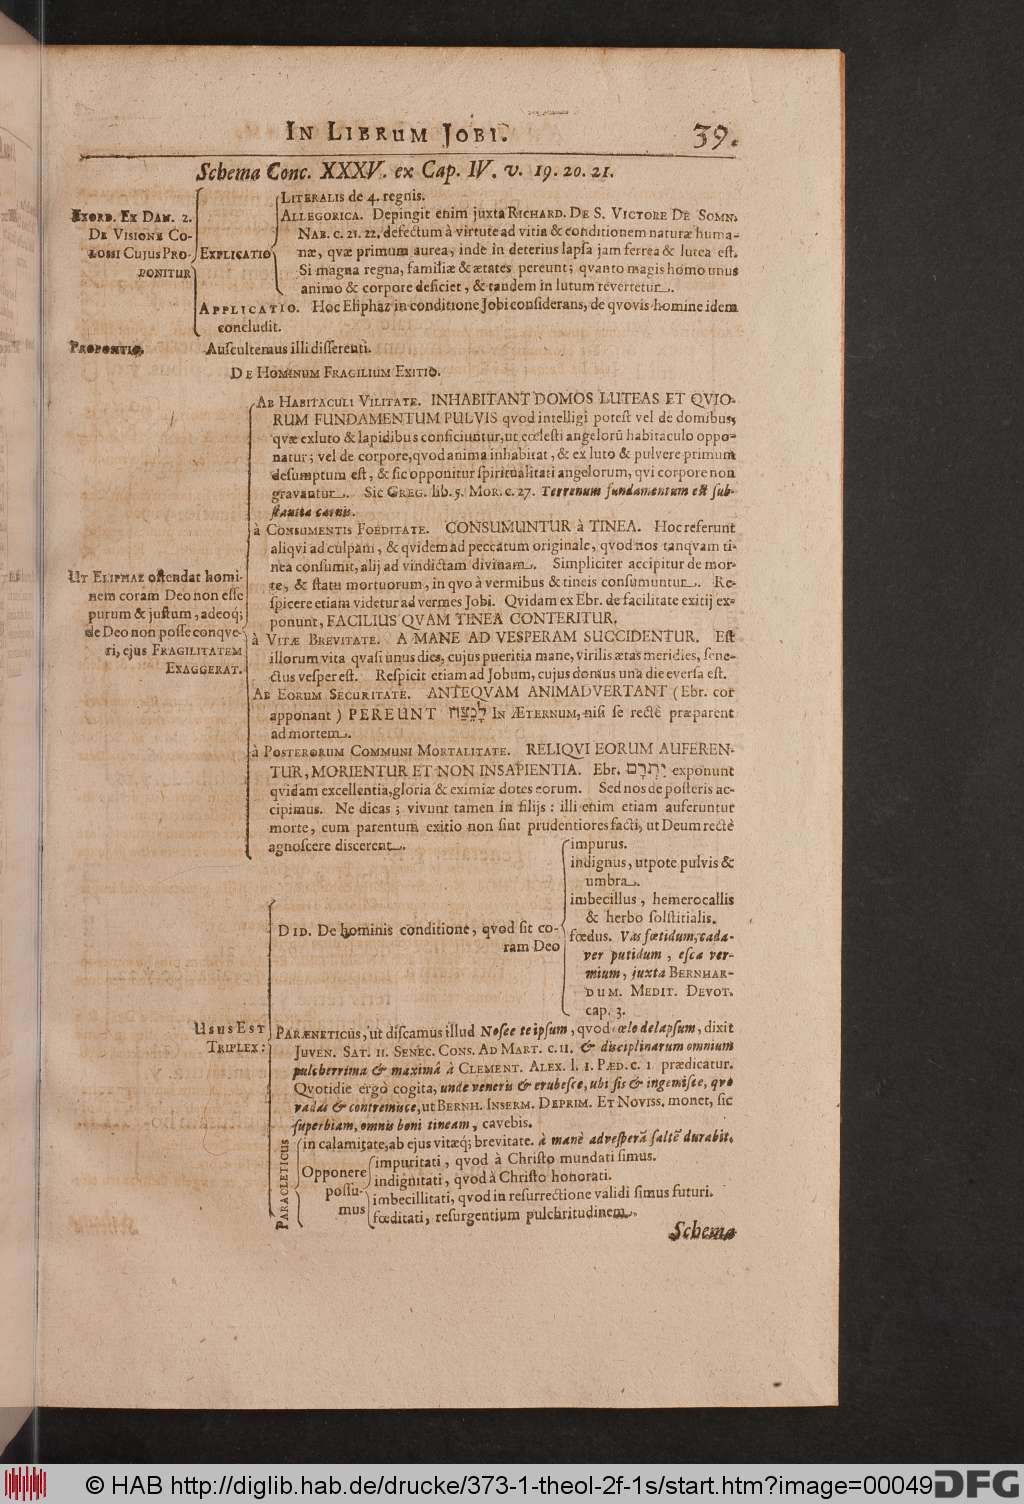 IN LIBRUM JOBI. 39.
Schema Conc. XXXV. ex Cap. IV. v. 19. 20. 21.
EXORD. EX DAN. 2.
DE VISIONE CO-
LOSSI CUJUS PRO-
PONITUR
EXPLICATIO
LITERALIS de 4. regnis.
ALLEGORICA. Depingit enim juxta RICHARD. DE S. VICTORE DE SOMN.
NAB. c. 21. 22. defectum à virtute ad vitia & conditionem naturæ huma-
næ, qvæ primum aurea, inde in deterius lapsa jam ferrea & lutea est.
Si magna regna, familiæ & ætates pereunt; qvanto magis homo unus
animo & corpore deficiet, & tandem in lutum revertetur.
APPLICATIO. Hoc Eliphaz in conditione Jobi considerans, de qvovis homine idem
concludit.
PROPOSITIO. Auscultemus illi disserenti.
DE HOMINUM FRAGILIUM EXITIO.
UT ELIPHAZ ostendat homi-
nem coram Deo non esse
purum & justum, adeoq;
de Deo non posse conqve-
ri, ejus FRAGILITATEM
EXAGGERAT.
AB HABITACULI VILITATE. INHABITANT DOMOS LUTEAS ET QVIO-
RUM FUNDAMENTUM PULVIS qvod intelligi potest vel de domibus,
qvæ ex luto & lapidibus conficiuntur, ut cœlesti angelorū habitaculo oppo-
natur; vel de corpore, qvod anima inhabitat, & ex luto & pulvere primum
desumptum est, & sic opponitur spiritualitati angelorum, qvi corpore non
gravantur. Sic GREG. lib. 5. MOR. c. 27. Terrenum fundamentum est sub-
stantia carnis.
à CONSUMENTIS FOEDITATE. CONSUMUNTUR à TINEA. Hoc referunt
aliqvi ad culpam, & qvidem ad peccatum originale, qvod nos tanqvam ti-
nea consumit, alij ad vindictam divinam. Simpliciter accipitur de mor-
te, & statu mortuorum, in qvo à vermibus & tineis consumuntur. Re-
spicere etiam videtur ad vermes Jobi. Qvidam ex Ebr. de facilitate exitij ex-
ponunt, FACILIUS QVAM TINEA CONTERITUR.
à VITÆ BREVITATE. A MANE AD VESPERAM SUCCIDENTUR. Est
illorum vita qvasi unus dies, cujus pueritia mane, virilis ætas meridies, sene-
ctus vesper est. Respicit etiam ad Jobum, cujus domus una die eversa est.
AB EORUM SECURITATE. ANTEQVAM ANIMADVERTANT (Ebr. cor
apponant) PEREUNT לָנֶצַח IN ÆTERNUM, nisi se rectè præparent
ad mortem.
à POSTERORUM COMMUNI MORTALITATE. RELIQVI EORUM AUFEREN-
TUR, MORIENTUR ET NON IN SAPIENTIA. Ebr. יִתְרָם exponunt
qvidam excellentia, gloria & eximiæ dotes eorum. Sed nos de posteris ac-
cipimus. Ne dicas; vivunt tamen in filijs: illi enim etiam auferuntur
morte, cum parentum exitio non sint prudentiores facti, ut Deum rectè
agnoscere discerent.
USUS EST
TRIPLEX:
DID. De hominis conditione, qvod sit co-
ram Deo
impurus.
indignus, utpote pulvis &
umbra.
imbecillus, hemerocallis
& herbo solstitialis.
fœdus. Vas fœtidum, cada-
ver putidum, esca ver-
mium, juxta BERNHAR-
DUM. MEDIT. DEVOT.
cap. 3.
PARÆNETICUS, ut discamus illud Nosce te ipsum, qvod cœlo delapsum, dixit
JUVEN. SAT. 11. SENEC. CONS. AD MART. c. 11. & disciplinarum omnium
pulcherrima & maximâ à CLEMENT. ALEX. l. 1. PÆD. c. 1 prædicatur.
Qvotidie ergò cogita, unde veneris & erubesce, ubi sis & ingemisce, qvo
vadas & contremisce, ut BERNH. INSERM. DEPRIM. ET NOVISS. monet, sic
superbiam, omnis boni tineam, cavebis.
PARACLETICUS
in calamitate, ab ejus vitæq; brevitate. à manè ad vesperā saltē durabit.
Opponere
possu-
mus
impuritati, qvod à Christo mundati simus.
indignitati, qvod à Christo honorati.
imbecillitati, qvod in resurrectione validi simus futuri.
fœditati, resurgentium pulchritudinem.
Schema
© HAB http://diglib.hab.de/drucke/373-1-theol-2f-1s/start.htm?image=00049
DFG